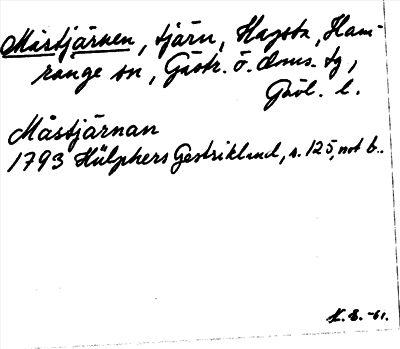 Måstjärnen, tjärn, Hagsta, Ham-
rånge sn, Gästr. ö. doms. tg,
Gävl. l.
Måstjärnan
1793 Hülphers Gestrikland, s. 125, not b.